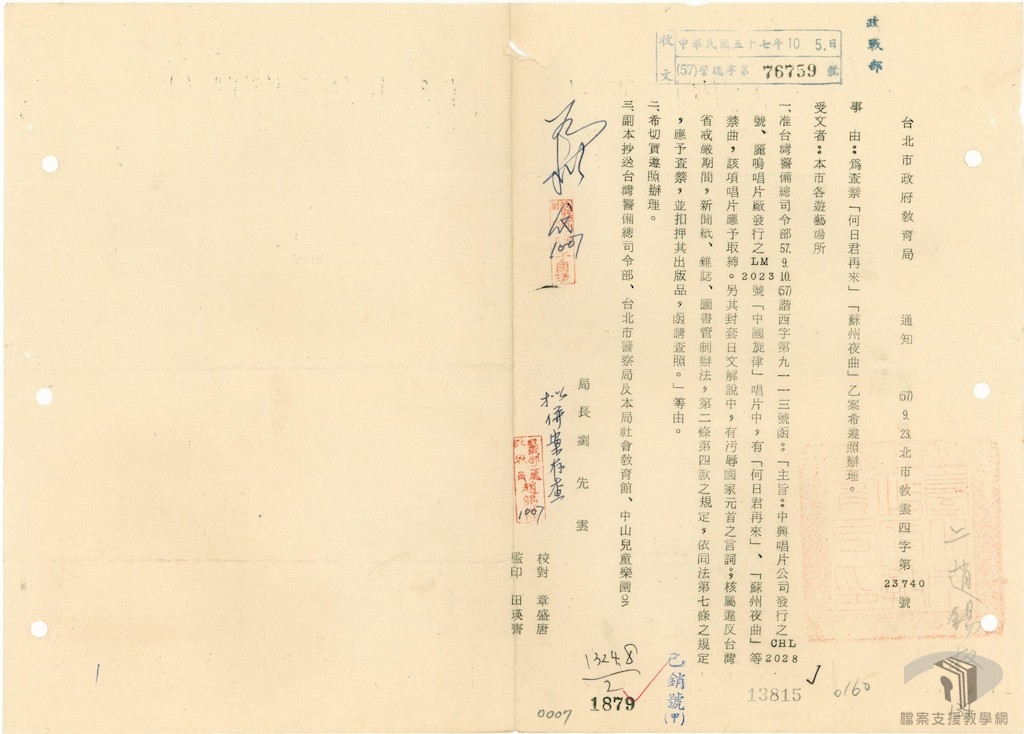 政戰部
收文
中華民國五十七年10 5.日
(57)營總字第 76759 號
台北市政府敎育局 通知 (57) 9. 23.北市敎雲四字第 23740 號
事 由：爲查禁「何日君再來」「蘇州夜曲」乙案希遵照辦理。
受文者：本市各遊藝場所
一、准台灣警備總司令部57. 9. 10.(57)諧西字第九一一三號函：「主旨：中興唱片公司發行之 CHL 2028
號、麗鳴唱片廠發行之 LM 2023 號「中國旋律」唱片中，有「何日君再來」、「蘇州夜曲」等
禁曲，該項唱片應予取締。另其封套日文解說中，有污辱國家元首之言詞，核屬違反台灣
省戒嚴期間，新聞紙、雜誌、圖書管制辦法，第二條第四款之規定，依同法第七條之規定
，應予查禁，並扣押其出版品，函請查照。」等由。
二、希切實遵照辦理。
三、副本抄送台灣警備總司令部、台北市警察局及本局社會敎育館、中山兒童樂園。
局長 劉先雲
校對 章盛唐
監印 田瑛齊
1007
擬併案存查
1007
13248
2
1879
0007
已銷號(甲)
13815
0160
檔案支援教學網